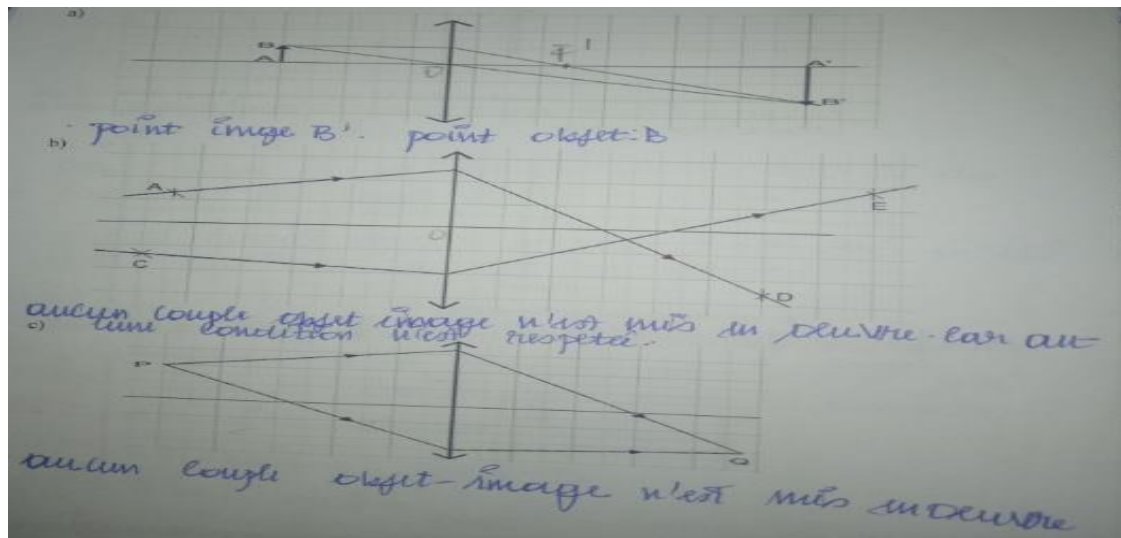 a)
B
A
O
F'
A'
B'
point image B'. point objet: B
b)
A
E
O
C
D
aucun couple objet image n'est mis en oeuvre. car au-
cune condition n'est respetée.
c)
P
Q
aucun couple objet-image n'est mis en oeuvre